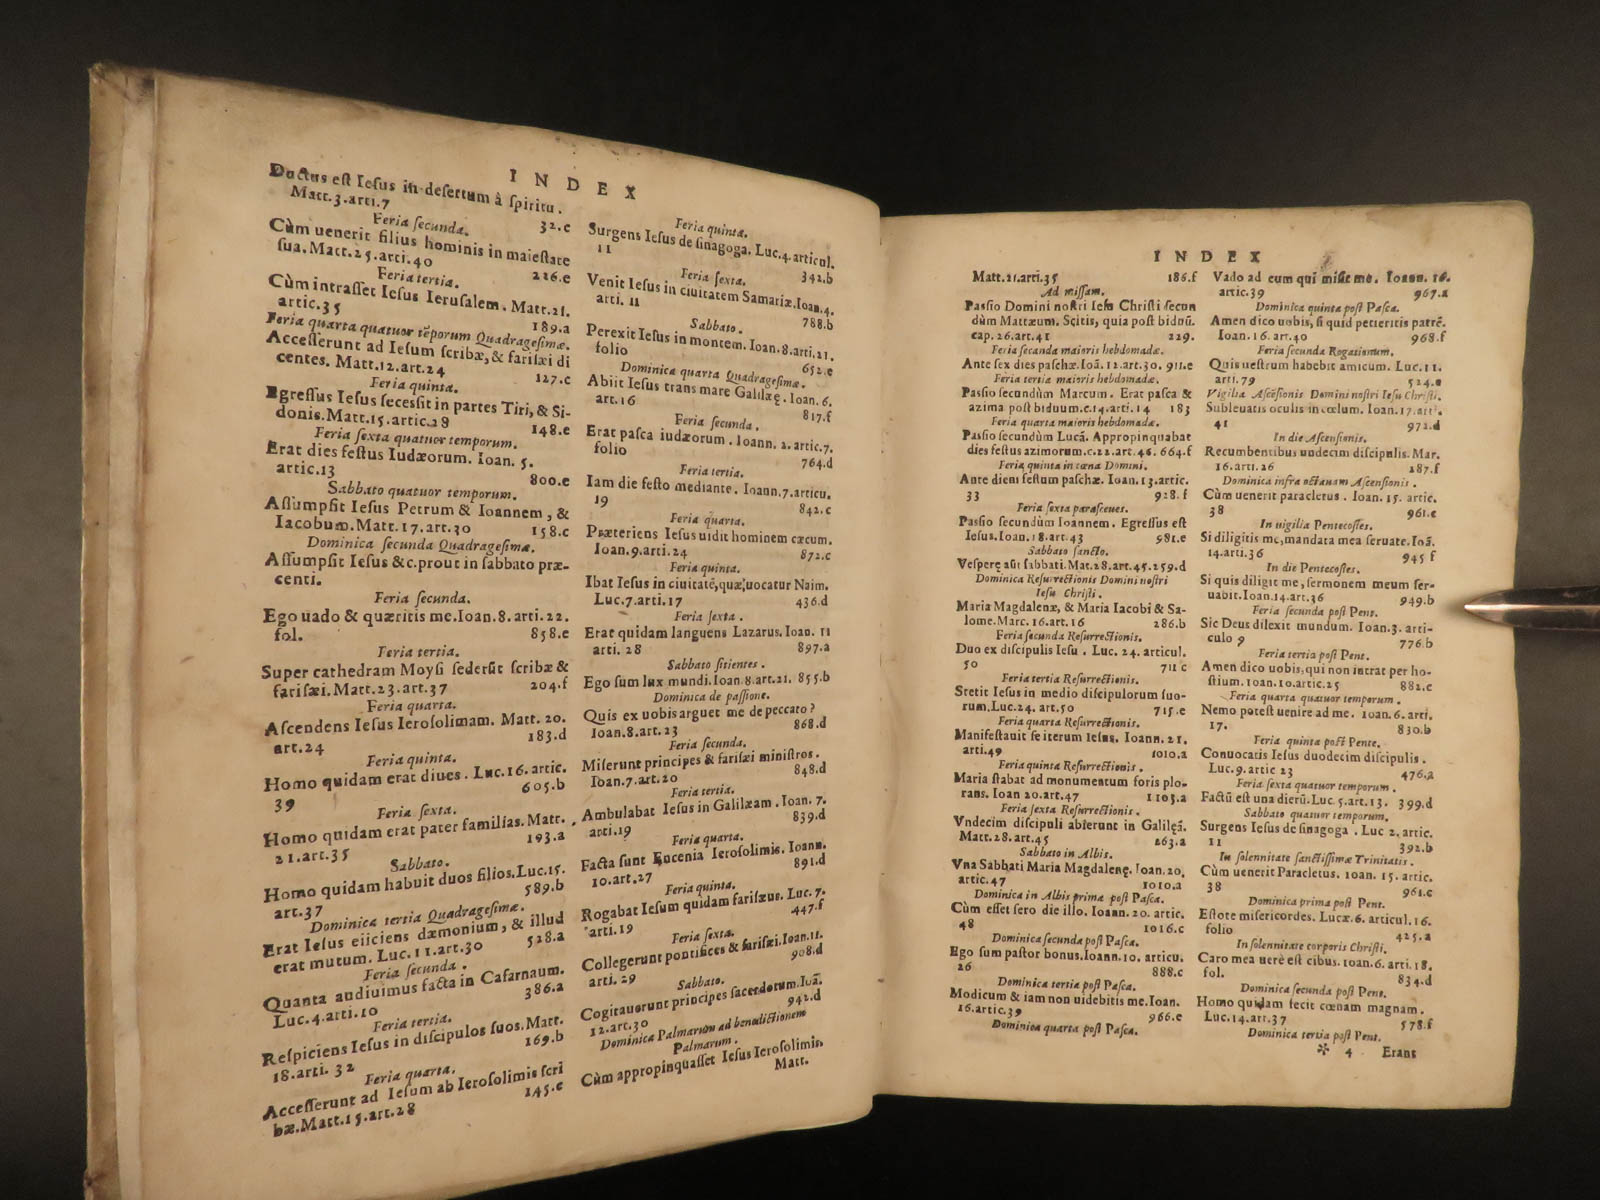 INDEX
Ductus est Iesus in desertum à spiritu.
Matt.3.arti.7 32.c
Feria secunda.
Cùm uenerit filius hominis in maiestate
sua. Matt.25.arti.40 226.e
Feria tertia.
Cùm intrasset Iesus Ierusalem. Matt.21.
artic.35 189.a
Feria quarta quatuor tẽporum Quadragesimæ.
Accesserunt ad Iesum scribæ, & farisæi di
centes. Matt.12.art.24 127.c
Feria quinta.
Egressus Iesus secessit in partes Tiri, & Si-
donis.Matt.15.artic.28 148.e
Feria sexta quatuor temporum.
Erat dies festus Iudæorum. Ioan. 5.
artic.13 800.e
Sabbato quatuor temporum.
Assumpsit Iesus Petrum & Ioannem, &
Iacobum.Matt.17.art.30 158.c
Dominica secunda Quadragesimæ.
Assumpsit Iesus &c.prout in sabbato præ-
centi.
Feria secunda.
Ego uado & quæritis me.Ioan.8.arti.22.
fol. 858.e
Feria tertia.
Super cathedram Moysi sederũt scribæ &
farisæi.Matt.23.art.37 204.f
Feria quarta.
Ascendens Iesus Ierosolimam. Matt. 20.
art.24 183.d
Feria quinta.
Homo quidam erat diues. Luc.16. artic.
39 605.b
Feria sexta.
Homo quidam erat pater familias.Matt.
21.art.35 193.a
Sabbato.
Homo quidam habuit duos filios.Luc.15.
art.37 589.b
Dominica tertia Quadragesimæ.
Erat Iesus eiiciens dæmonium, & illud
erat mutum. Luc.11.art.30 528.a
Feria secunda.
Quanta audiuimus facta in Cafarnaum.
Luc.4.arti.10 386.a
Feria tertia.
Respiciens Iesus in discipulos suos.Matt.
18.arti. 32 169.b
Feria quarta.
Accesserunt ad Iesum ab Ierosolimis scri
bæ.Matt.15.art.28 145.e
Feria quinta.
Surgens Iesus de sinagoga. Luc.4.articul.
11 342.b
Feria sexta.
Venit Iesus in ciuitatem Samariæ.Ioan.4.
arti. 11 788.b
Sabbato.
Perexit Iesus in montem. Ioan.8.arti.21.
folio 652.e
Dominica quarta Quadragesimæ.
Abiit Iesus trans mare Galilæę. Ioan. 6.
art.16 817.f
Feria secunda.
Erat pasca iudæorum. Ioann. 2. artic.7.
folio 764.d
Feria tertia.
Iam die festo mediante. Ioann.7.articu.
19 842.c
Feria quarta.
Præteriens Iesus uidit hominem cæcum.
Ioan.9.arti.24 872.c
Feria quinta.
Ibat Iesus in ciuitatẽ,quæ,uocatur Naim.
Luc.7.arti.17 436.d
Feria sexta.
Erat quidam languens Lazarus. Ioan. 11
arti. 28 897.a
Sabbato sitientes.
Ego sum lux mundi. Ioan.8.art.21. 855.b
Dominica de passione.
Quis ex uobis arguet me de peccato?
Ioan.8.art.23 868.d
Feria secunda.
Miserunt principes & farisæi ministros.
Ioan.7.art.20 848.d
Feria tertia.
Ambulabat Iesus in Galilæam. Ioan. 7.
arti.19 839.d
Feria quarta.
Facta sunt Encenia Ierosolimis. Ioann.
10.art.27 891.d
Feria quinta.
Rogabat Iesum quidam farisæus. Luc.7.
arti.19 447.f
Feria sexta.
Collegerunt pontifices & farisæi.Ioan.11.
arti. 29 908.d
Sabbato.
Cogitauerunt principes sacerdotum.Ioã.
12.art.30 942.d
Dominica Palmarum ad benedictionem
Palmarum.
Cùm appropinquasset Iesus Ierosolimis.
Matt.
INDEX
Matt.21.arti.35 186.f
Ad missam.
Passio Domini nostri Iesu Christi secun
dùm Mattæum. Scitis, quia post biduũ.
cap.26.art.41 229.
Feria secunda maioris hebdomadæ.
Ante sex dies paschæ.Ioã.12.art.30. 911.e
Feria tertia maioris hebdomadæ.
Passio secundùm Marcum. Erat pasca &
azima post biduum.c.14.arti.14 183
Feria quarta maioris hebdomadæ.
Passio secundùm Lucã. Appropinquabat
dies festus azimorum.c.22.art.46. 664.f
Feria quinta in cœna Domini.
Ante diem festum paschæ. Ioan.13.artic.
33 928.f
Feria sexta parasceues.
Passio secundùm Ioannem. Egressus est
Iesus.Ioan.18.art.43 981.e
Sabbato sancto.
Vesperę aũt sabbati.Mat.28.art.45.259.d
Dominica Resurrectionis Domini nostri
Iesu Christi.
Maria Magdalenæ, & Maria Iacobi & Sa-
lome.Marc.16.art.16 286.b
Feria secunda Resurrectionis.
Duo ex discipulis Iesu. Luc. 24. articul.
50 711 c
Feria tertia Resurrectionis.
Stetit Iesus in medio discipulorum suo-
rum.Luc.24. art.50 715.e
Feria quarta Resurrectionis.
Manifestauit se iterum Iesus. Ioann.21.
arti.49 1010.a
Feria quinta Resurrectionis.
Maria stabat ad monumentum foris plo-
rans. Ioan 20.art.47 1103.a
Feria sexta Resurrectionis.
Vndecim discipuli abierunt in Galilęã.
Matt.28.art.45 263.a
Sabbato in Albis.
Vna Sabbati Maria Magdalenę. Ioan.20.
artic.47 1010.a
Dominica in Albis prima post Pasca.
Cùm esset sero die illo. Ioann.20. artic.
48 1016.c
Dominica secunda post Pasca.
Ego sum pastor bonus.Ioann.10. articu.
26 888.c
Dominica tertia post Pasca.
Modicum & iam non uidebitis me.Ioan.
16.artic.39 966.e
Dominica quarta post Pasca.
Vado ad eum qui misit me. Ioann. 16.
artic.39 967.a
Dominica quinta post Pasca.
Amen dico uobis, si quid petieritis patrẽ.
Ioan.16.art.40 968.f
Feria secunda Rogationum.
Quis uestrum habebit amicum. Luc.11.
arti.79 524.e
Vigilia Ascẽsionis Domini nostri Iesu Christi.
Subleuatis oculis in cœlum. Ioan.17.arti.
41 972.d
In die Ascensionis.
Recumbentibus undecim discipulis. Mar.
16.arti.26 287.f
Dominica infra octauam Ascensionis.
Cùm uenerit paracletus. Ioan. 15. artic.
38 961.c
In uigilia Pentecostes.
Si diligitis me,mandata mea seruate.Ioã.
14.arti.36 945 f
In die Pentecostes.
Si quis diligit me, sermonem meum ser-
uabit.Ioan.14.art.36 949.b
Feria secunda post Pent.
Sic Deus dilexit mundum. Ioan.3. arti-
culo 9 776.b
Feria tertia post Pent.
Amen dico uobis,qui non intrat per ho-
stium. Ioan.10.artic.25 882.c
Feria quarta quatuor temporum.
Nemo potest uenire ad me. Ioan.6. arti.
17. 830.b
Feria quinta post Pente.
Conuocatis Iesus duodecim discipulis.
Luc.9.artic 23 476.a
Feria sexta quatuor temporum.
Factũ est una dierũ.Luc.5.art.13. 399.d
Sabbato quatuor temporum.
Surgens Iesus de sinagoga. Luc 2. artic.
11 392.b
In solennitate sanctissimæ Trinitatis.
Cùm uenerit Paracletus. Ioan. 15. artic.
38 961.c
Dominica prima post Pent.
Estote misericordes. Lucæ.6. articul.16.
folio 425.a
In solennitate corporis Christi.
Caro mea uerè est cibus. Ioan.6. arti.18.
fol. 834.d
Dominica secunda post Pent.
Homo quidam fecit cœnam magnam.
Luc.14.art.37 578.f
Dominica tertia post Pent.
✻ 4 Erant